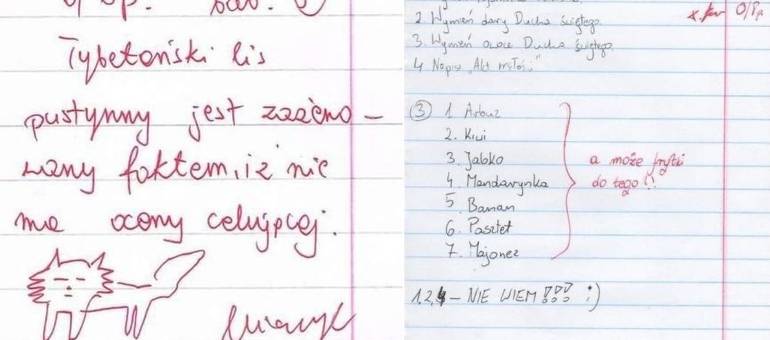 Tybetański lis
pustynny jest zażeno-
wany faktem, iż nie
ma oceny celującej.
2 Wymień dary Ducha Świętego.
3. Wymień owoce Ducha Świętego.
4 Napisz „Akt miłości”
O/Pp
③ 1 Arbuz
2. Kiwi
3. Jabko
4. Mandarynka
5 Banan
6. Pasztet
7. Majonez
a może frytki
do tego!?
1,2,4 – NIE WIEM !!! :)